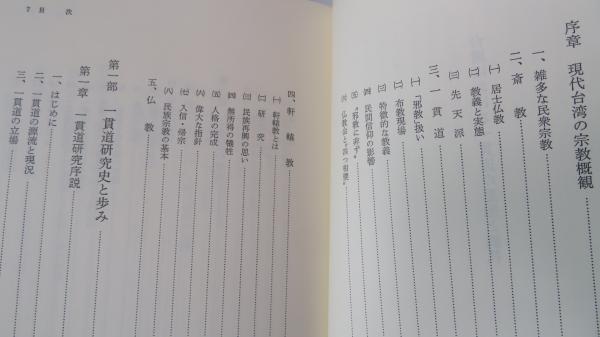 序章　現代台湾の宗教概観
一、雑多な民衆宗教
二、斎　教
㈠　居士仏教
㈡　教義と実態
㈢　先天派
三、一貫道
㈠　「邪教」扱い
㈡　布教現場
㈢　特徴的な教義
㈣　民間信仰の影響
㈤　"邪教に非ず"
四、軒轅教
㈠　軒轅教とは
㈡　研究
㈢　民族再興の思い
㈣　無所得の犠牲
㈤　人格の完成
㈥　偉大な指針
㈦　入信・帰宗
㈧　民族宗教の基本
五、仏教
第一部　一貫道研究史と歩み
第一章　一貫道研究序説
一、はじめに
二、一貫道の源流と現況
三、一貫道の立場
7　目　次